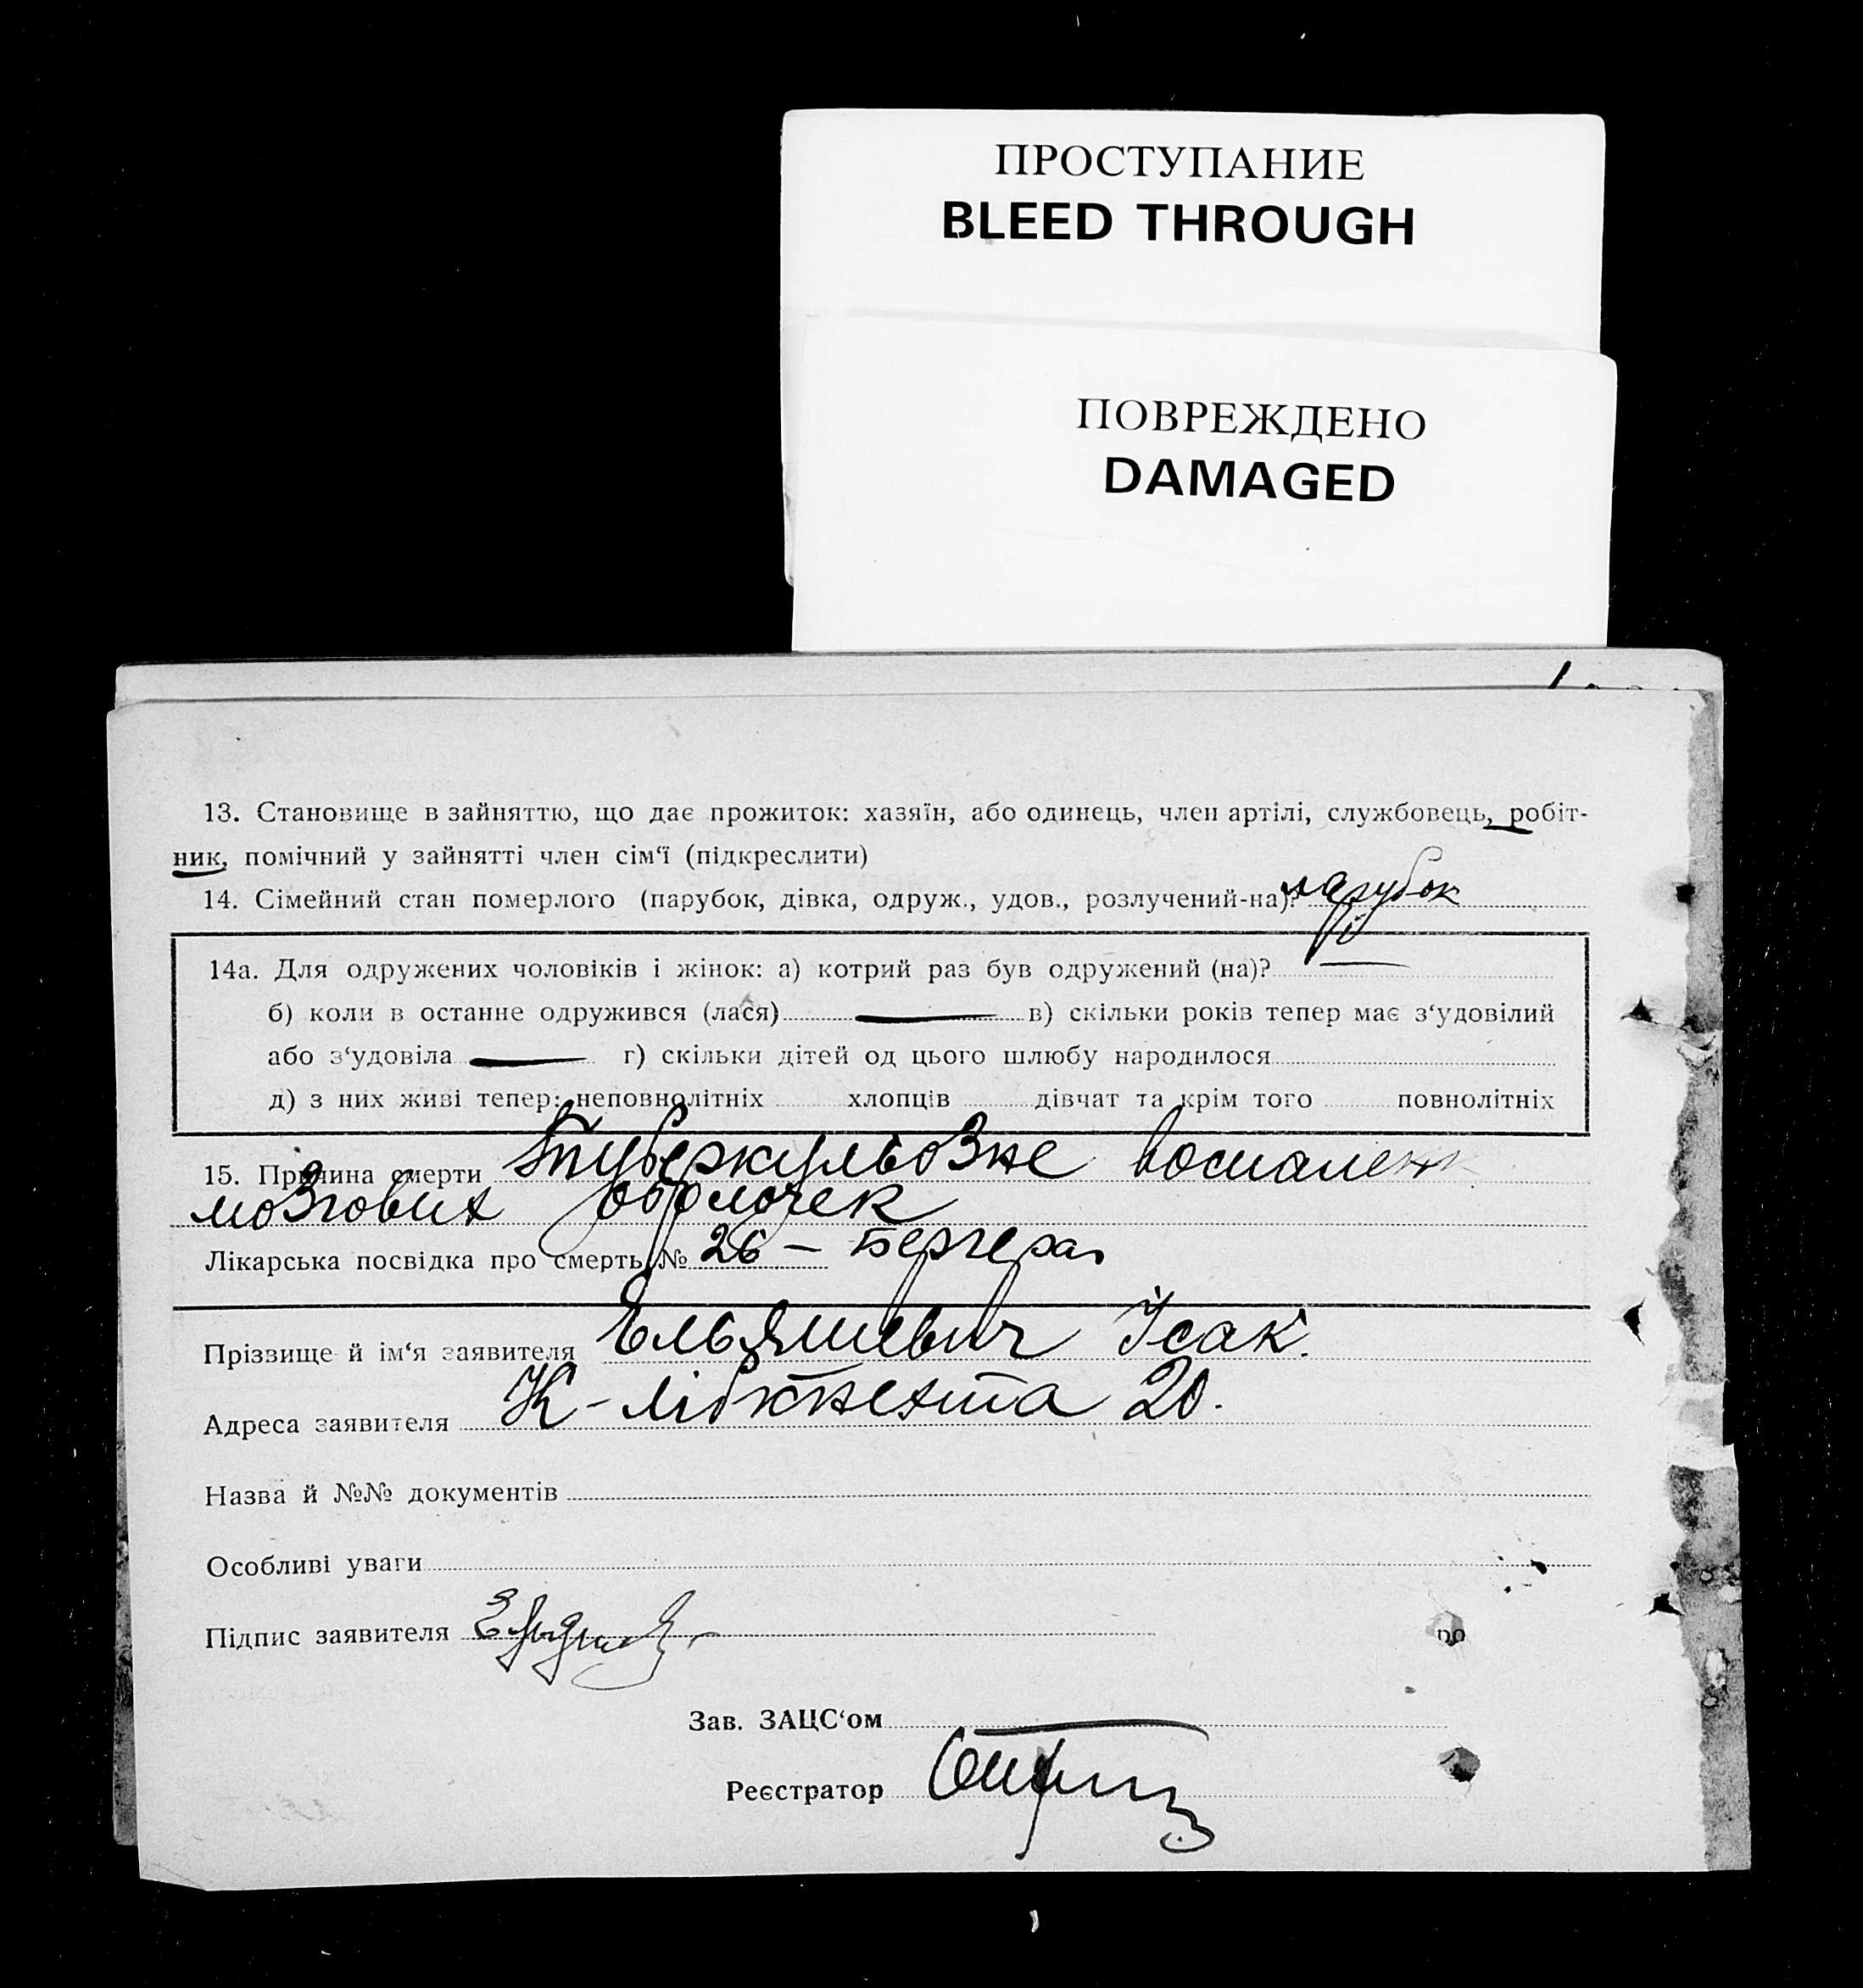 ПРОСТУПАНИЕ
BLEED THROUGH
ПОВРЕЖДЕНО
DAMAGED
13. Становище в зайняттю, що дає прожиток: хазяїн, або одинець, член артілі, службовець, робіт-
ник, помічний у зайнятті член сім‘ї (підкреслити)
14. Сімейний стан померлого (парубок, дівка, одруж., удов., розлучений-на)? парубок
14а. Для одружених чоловіків і жінок: а) котрий раз був одружений (на)?
б) коли в останне одружився (лася) — в) скільки років тепер має з‘удовілий
або з‘удовіла — г) скільки дітей од цього шлюбу народилося
д) з них живі тепер: неповнолітніх хлопців дівчат та крім того повнолітніх
15. Причина смерти Туберкульозне
мозгових оболочек
Лікарська посвідка про смерть № 26 —
Прізвище й ім‘я заявителя Ельяшевич Ісак.
Адреса заявителя К-Лібкнехта 20.
Назва й №№ документів
Особливі уваги
Підпис заявителя
Зав. ЗАЦС‘ом
Реєстратор